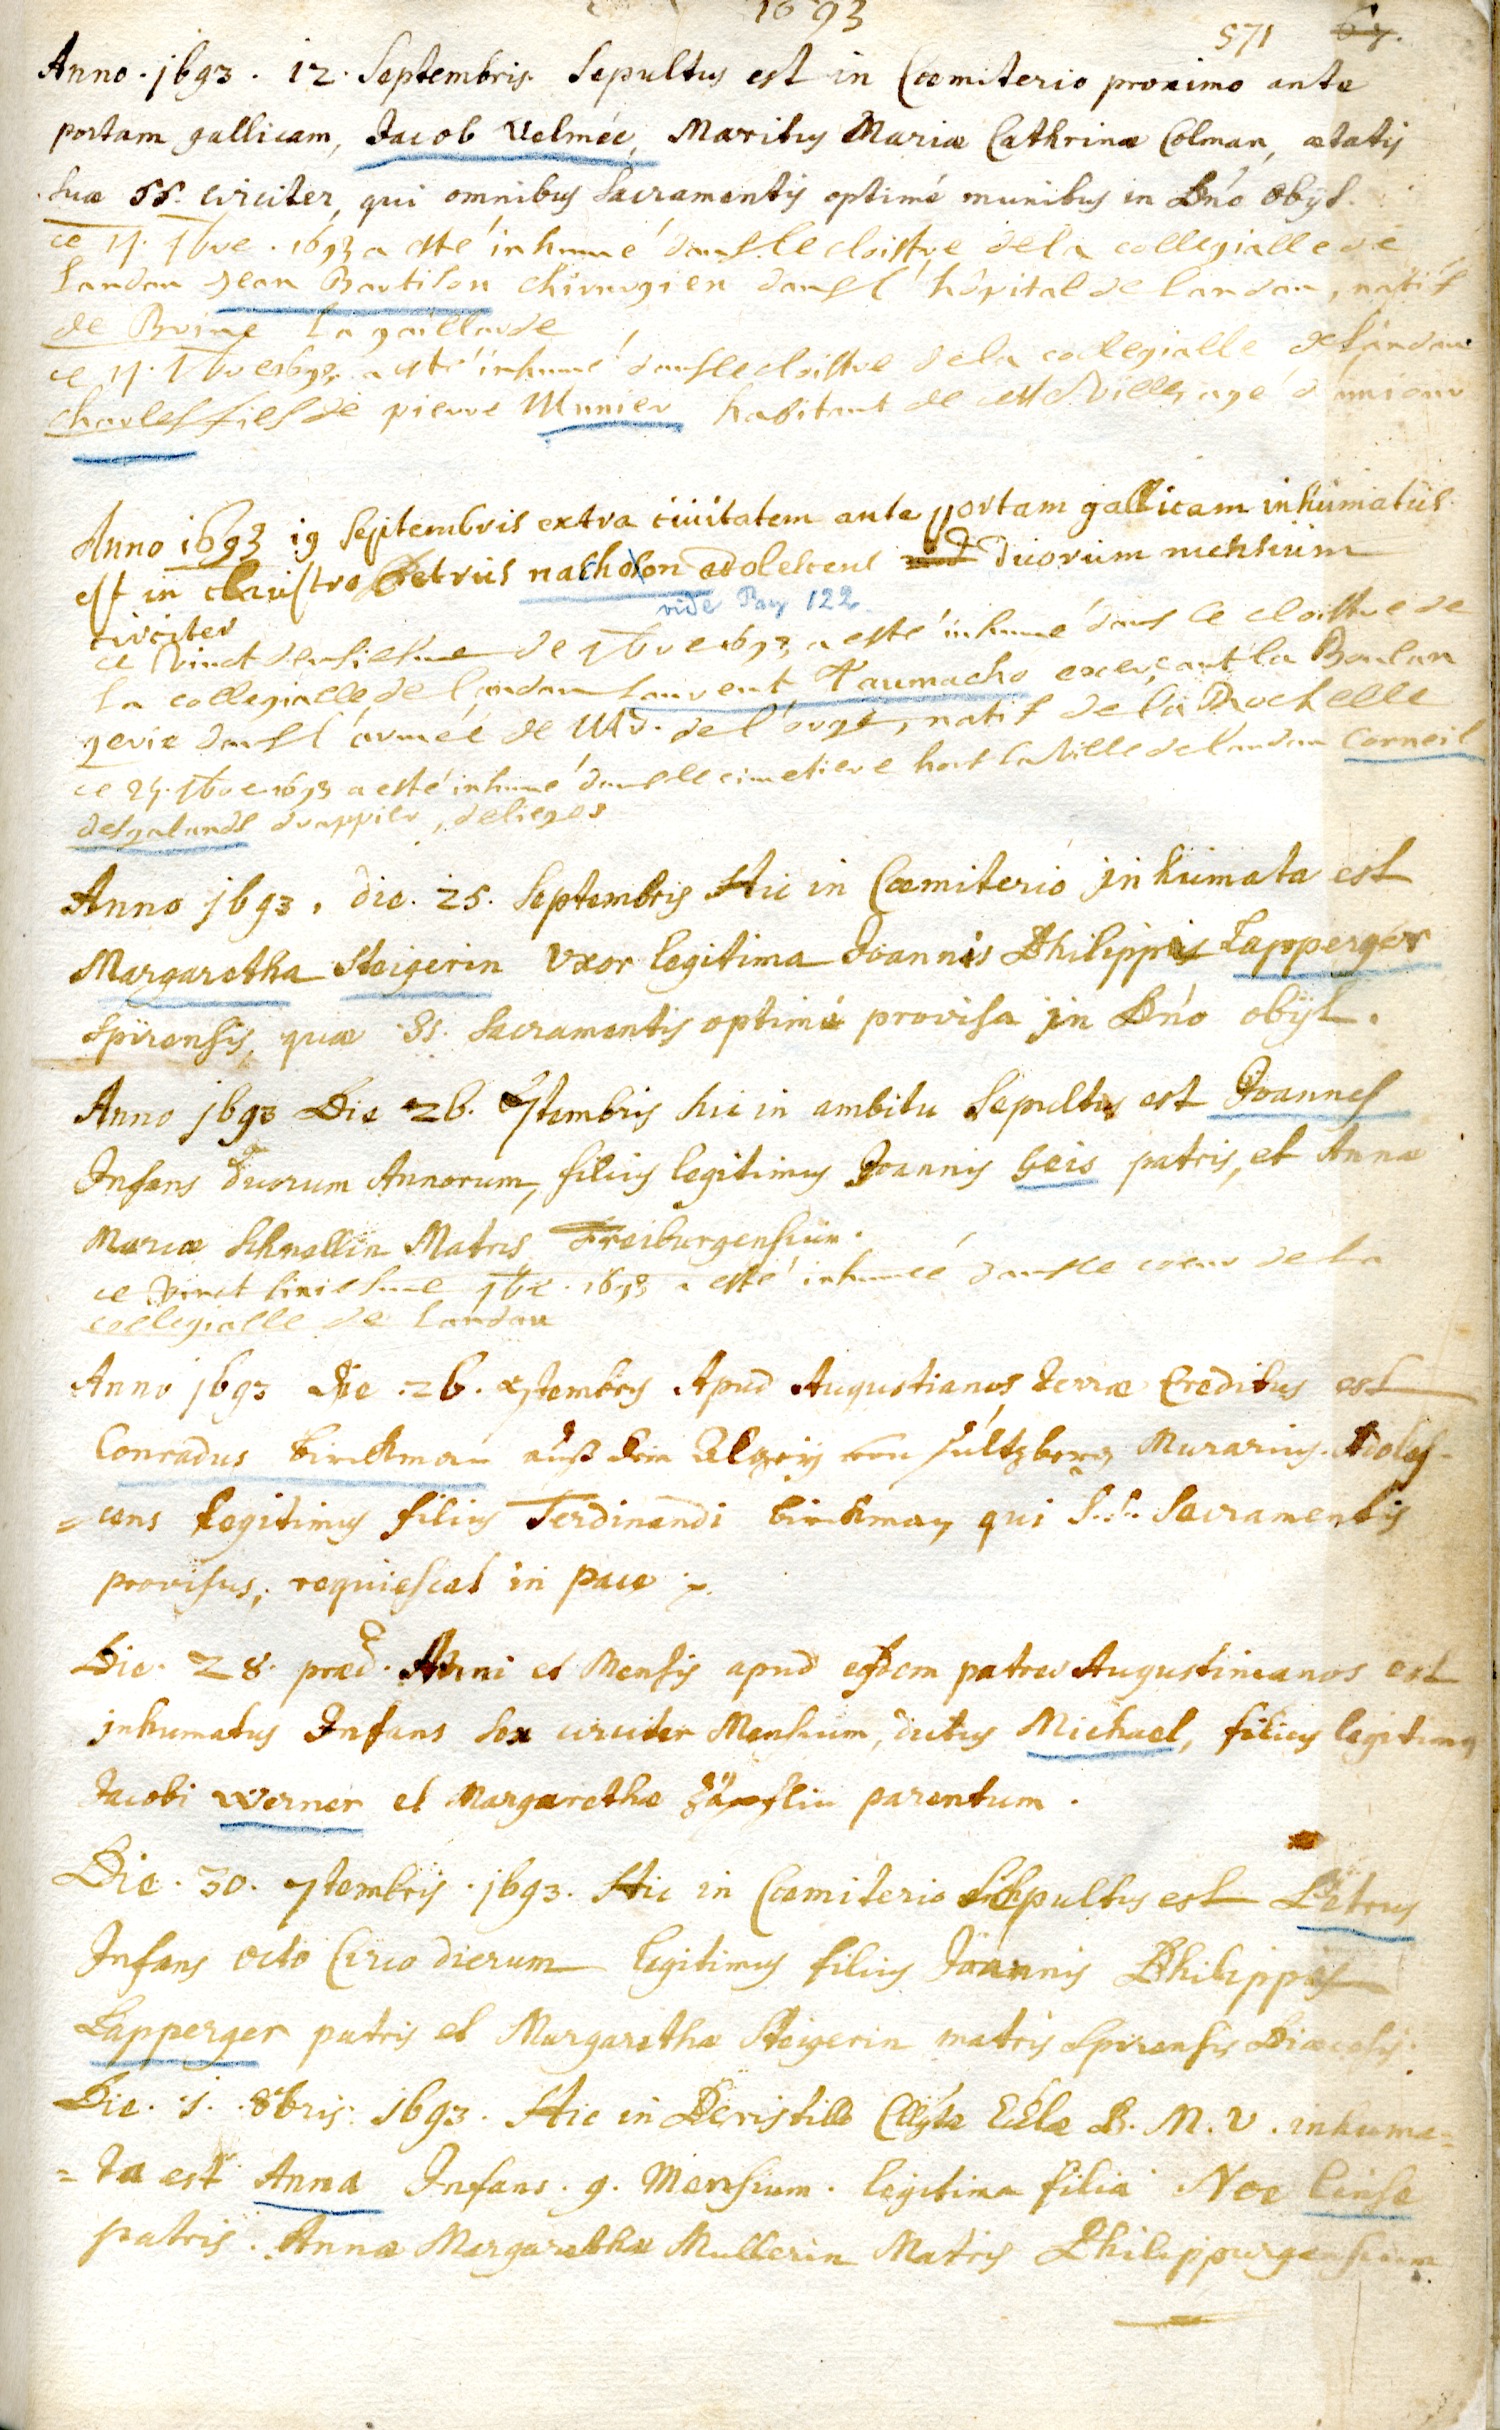 1693
571 67.
Anno . 1693 . 12 . Septembris Sepultus est in Coemiterio proximo ante
portam gallicam, Jacob Velmée, Maritus Mariæ Cathrinæ Colman, ætatis
suæ 55. circiter, qui omnibus Sacramentis optimé munitus in Dn̄o obijt.
ce 17. 7bre . 1693 a esté inhumé dans le cloistre de la collegialle de
Landau Jean Bartilon chirurgien dans l' hôpital de landau, natif
de Brine la gaillarde
ce 17. 7bre 1693 a esté inhumé dans le cloistre de la collegialle de Landau
charles fils de pierre Munier habitant de cette Ville, agé d'un jour
Anno 1693 19 Septembris extra ciuitatem ante portam gallicam inhumatus
est in claustro Petrus nacholon adolescens duorum mensium
circiter
vide Pag 122
ce Vinct deusiesme de 7bre 1693 a esté inhumé dans le cloistre de
la collegialle de Landau Laurent Taumacho exerçant la Boulan
gerie dans l'armée de Mr. de l'orge, natif de la Rochelle
ce 24. 7bre 1693 a esté inhumé dans le cimetiere hors la Ville de landau Corneil
desgalands drappier, de lieges
Anno 1693, die . 25. Septembris Hic in Coemiterio inhumata est
Margaretha Steigerin Vxor legitima Joannis Philippi Lapperger
Spirensis, quæ SS. Sacramentis optimé provisa in Dn̄o obijt.
Anno 1693 Die 26. 7tembris hic in ambitu Sepultus est Joannes
Infans duorum Annorum, filius legitimus Joannis Geis patris, et Annæ
Mariæ Schnellin Matris Freiburgensium.
ce Vinct siniesme 7bre . 1693 a esté inhumé dans le coeur de la
collegialle de Landau
Anno 1693 Die 26. 7tembris Apud Augustianos terræ Creditus est
Conradus birckman auß dem von sultzberg Murarius. Adoles-
=cens legitimus filius Ferdinandi birckman, qui S.S. Sacramentis
provisus, requiescat in pace
Die . 28. præd. Anni et Mensis apud eosdem patres Augustinianos est
inhumatus Infans sex circiter Mensium, dictus Michael, filius legitimus
Jacobi Werner et Margarethæ parentum .
Die . 30. 7tembris . 1693. Hic in Coemiterio Sepultus est Petrus
Infans octo Circa dierum legitimus filius Joannis Philippi
Lapperger patris et Margarethæ Steigerin matris Spirensis Dioecesis.
Die . 1 . 8bris . 1693 . Hic in Peristillo Collegiatæ Ecclæ B. M. V . inhuma=
=ta est Anna Infans . 9. Mensium . legitima filia Noe linse
patris . Annæ Margarethæ Mullerin Matris Philippurgensium